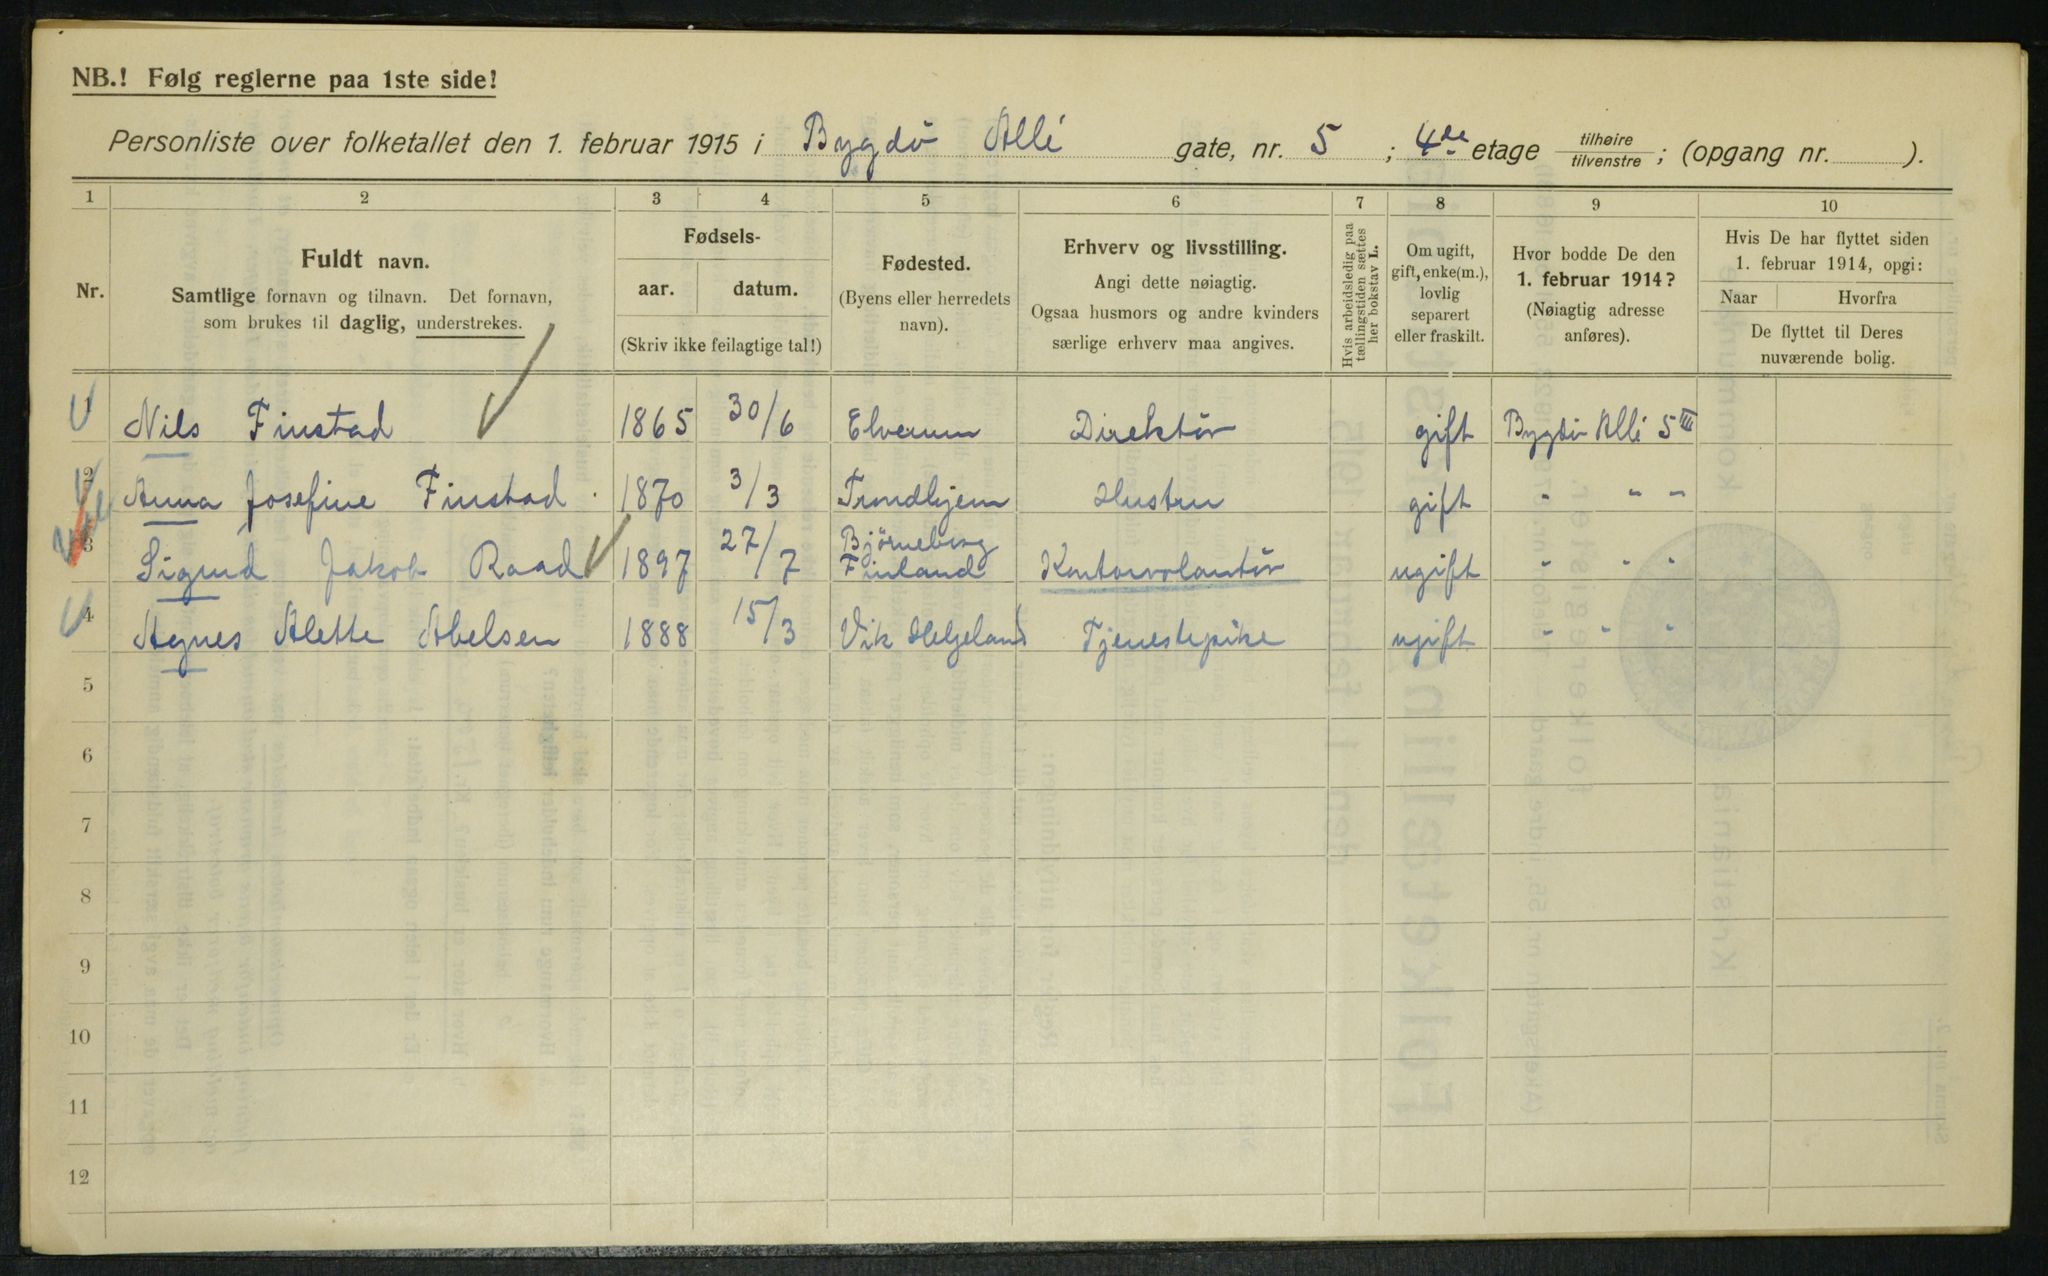 NB.! Følg reglerne paa 1ste side!
Personliste over folketallet den 1. februar 1915 i Bygdø Allé gate, nr. 5 ; 4de etage tilhøire tilvenstre ; (opgang nr. ).
1 2 3 4 5 6 7 8 9 10
Nr.
Fuldt navn.
Samtlige fornavn og tilnavn. Det fornavn,
som brukes til daglig, understrekes.
Fødsels-
aar. datum.
(Skriv ikke feilagtige tal!)
Fødested.
(Byens eller herredets
navn).
Erhverv og livsstilling.
Angi dette nøiagtig.
Ogsaa husmors og andre kvinders
særlige erhverv maa angives.
Hvis arbeidsledig paa
tællingstiden sættes
her bokstav L.
Om ugift,
gift, enke(m.),
lovlig
separert
eller fraskilt.
Hvor bodde De den
1. februar 1914?
(Nøiagtig adresse
anføres).
Hvis De har flyttet siden
1. februar 1914, opgi:
Naar Hvorfra
De flyttet til Deres
nuværende bolig.
1 Nils Finstad 1865 30/6 Elverum Direktør gift Bygdø Allé 5 III
2 Anna Josefine Finstad 1870 3/3 Trondhjem Hustru gift " " "
3 Sigurd Jakob Raad 1897 27/7 Bjørneborg Finland Kontorvolontør ugift " " "
4 Agnes Alette Abelsen 1888 15/3 Vik Helgeland Tjenestepike ugift " " "
5
6
7
8
9
10
11
12